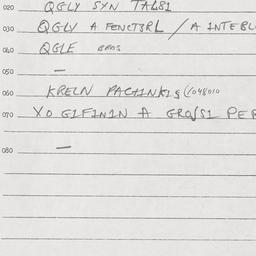 020 QGLY SYN TALS1
030 QGLV A FENCT3RL / A INTEBL
040 QGLE BROS
050 —
060 KRELN PACTINKIS
070 XO GIFININ A GROJSI PER
080 —